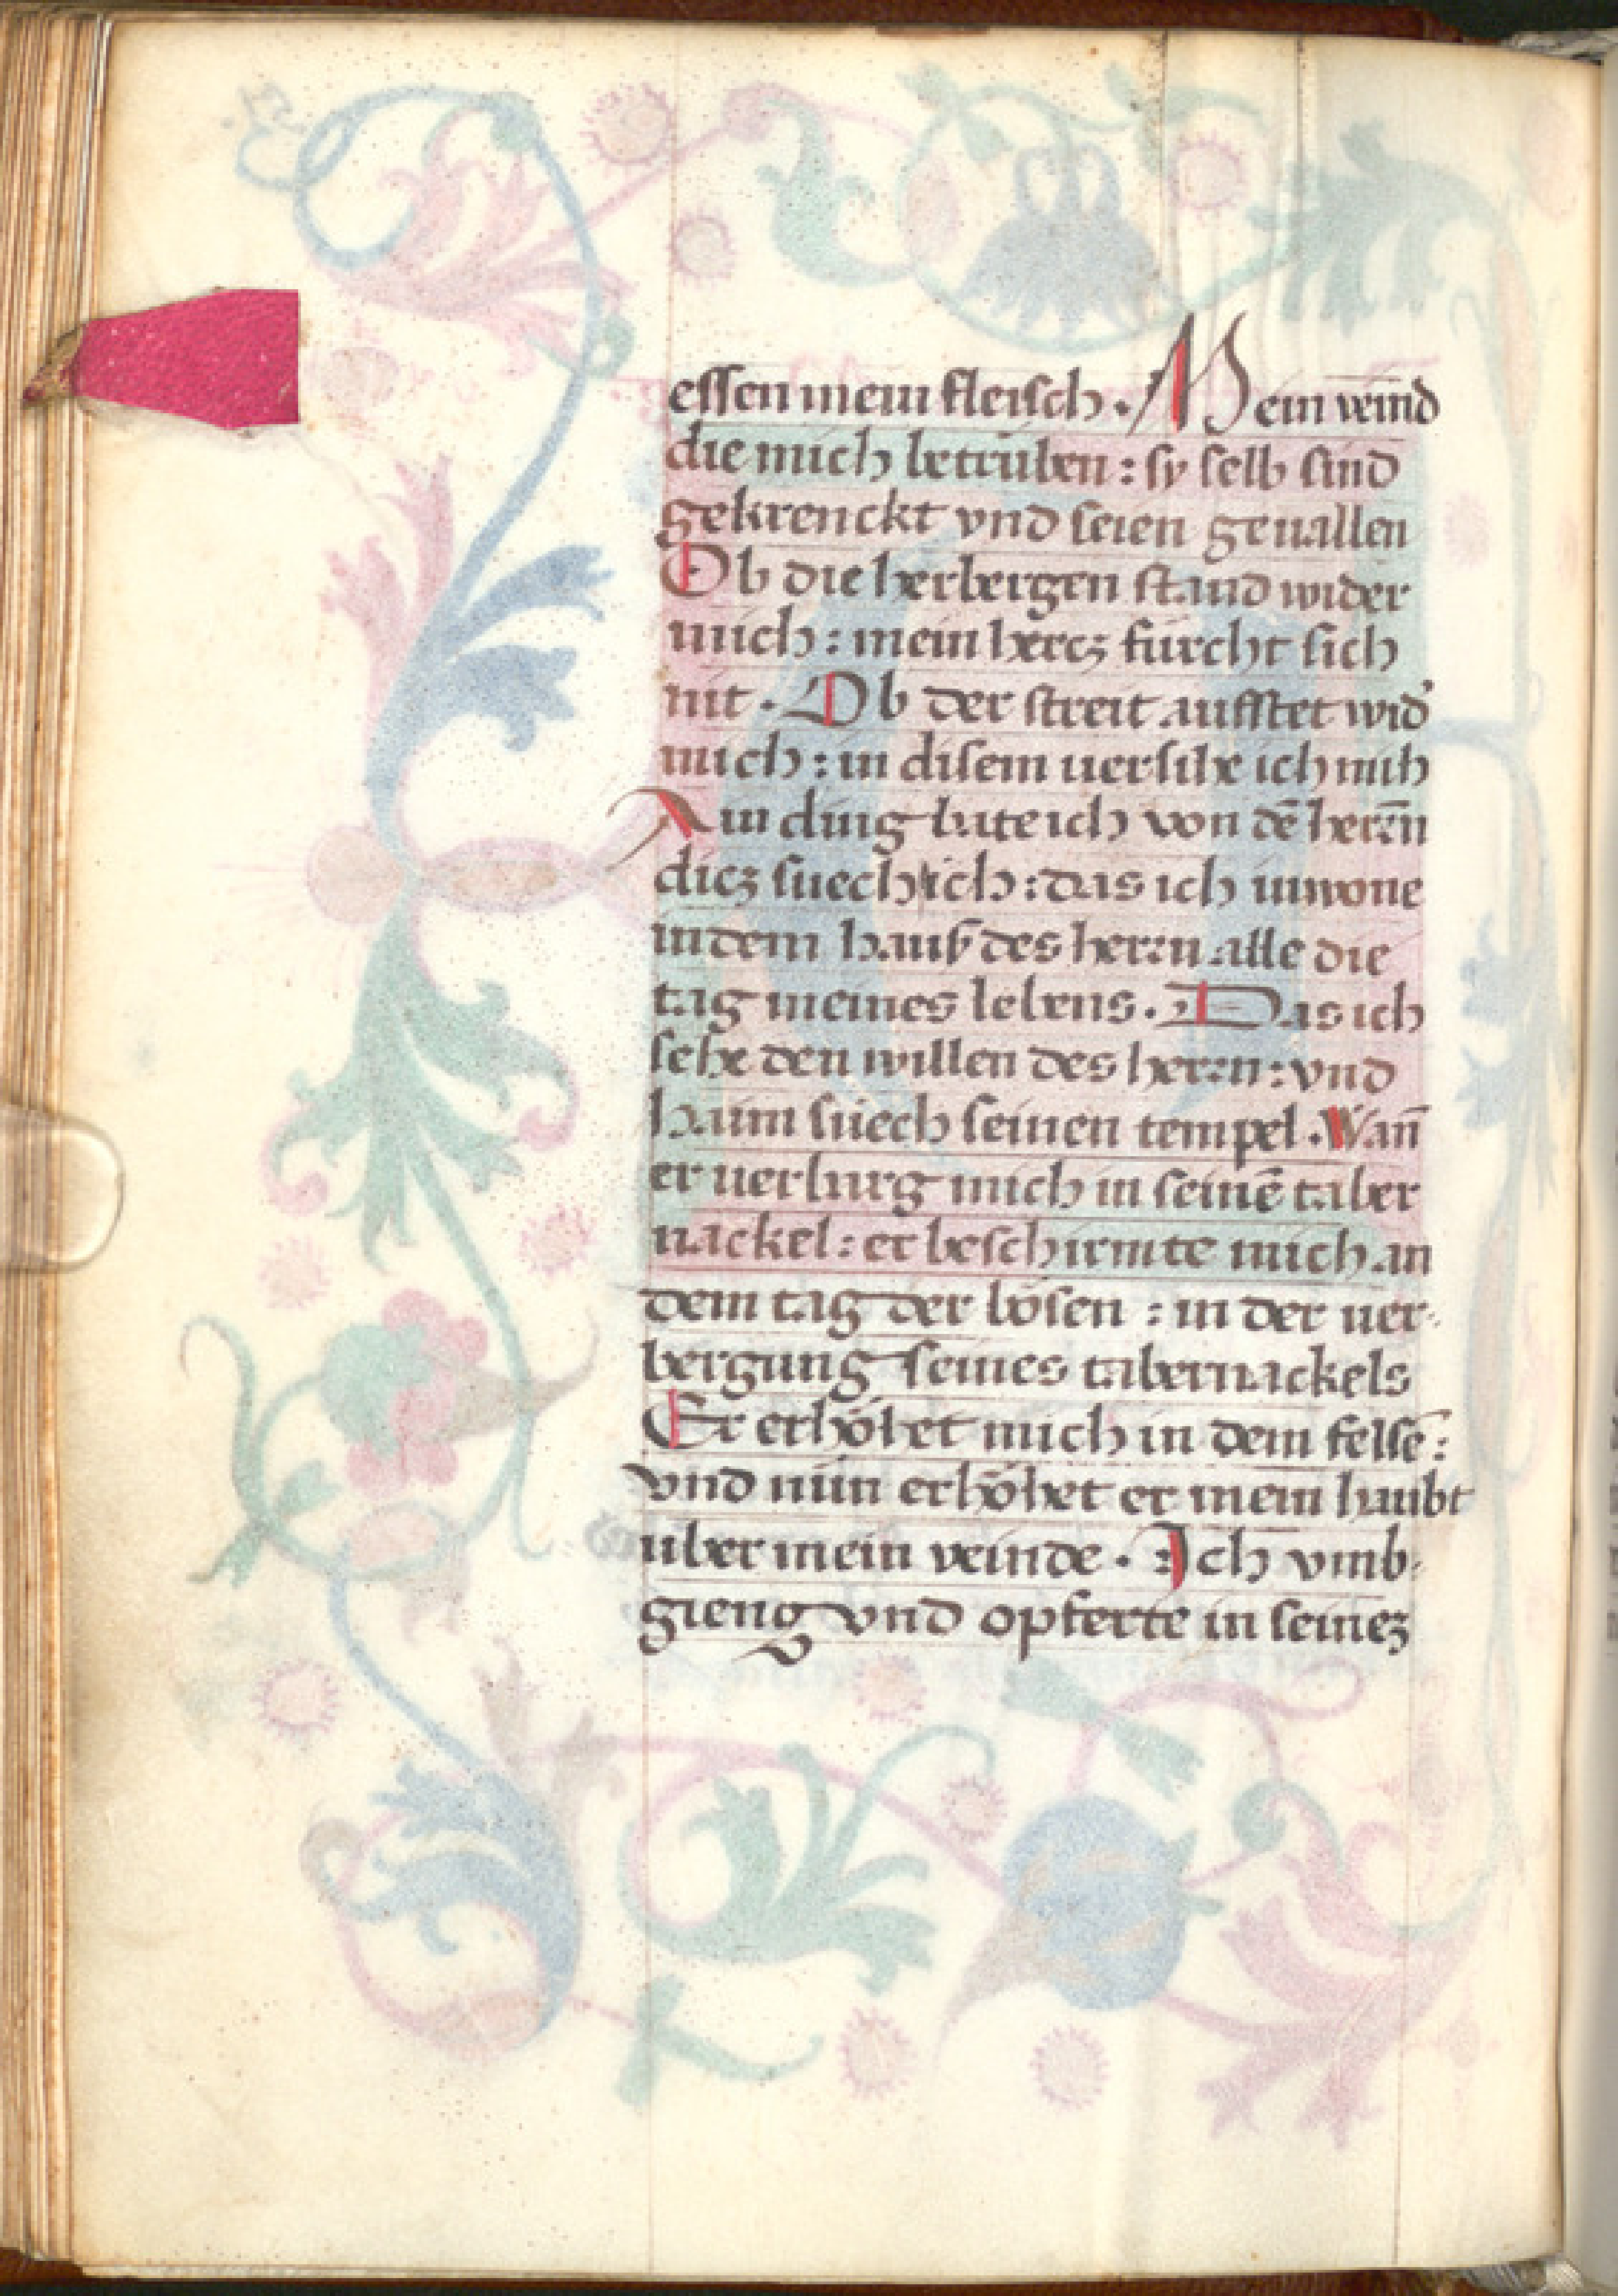 essen mein fleisch. Mein veind
die mich betrüben: sy selb sind
gekrenckt vnd seien geuallen
Ob die herbergen stand wider
mich: mein hercz fürcht sich
nit. Ob der streit auffstet wid'
mich: in disem uersihe ich mih
Ain ding bite ich von dē herrn
dicz suech ich: das ich inwone
in dem hauß des herrn alle die
tag meines lebens. Das ich
sehe den willen des herrn: vnd
haim suech seinen tempel. Wañ
er uerburg mich in seinē taber
nackel: er beschirmte mich an
dem tag der bösen: in der uer-
bergung seines tabernackels
Er erhöhet mich in dem felsē:
vnd nun erhöhet er mein haubt
uber mein veinde. Ich vmb-
gieng vnd opferte in seinez